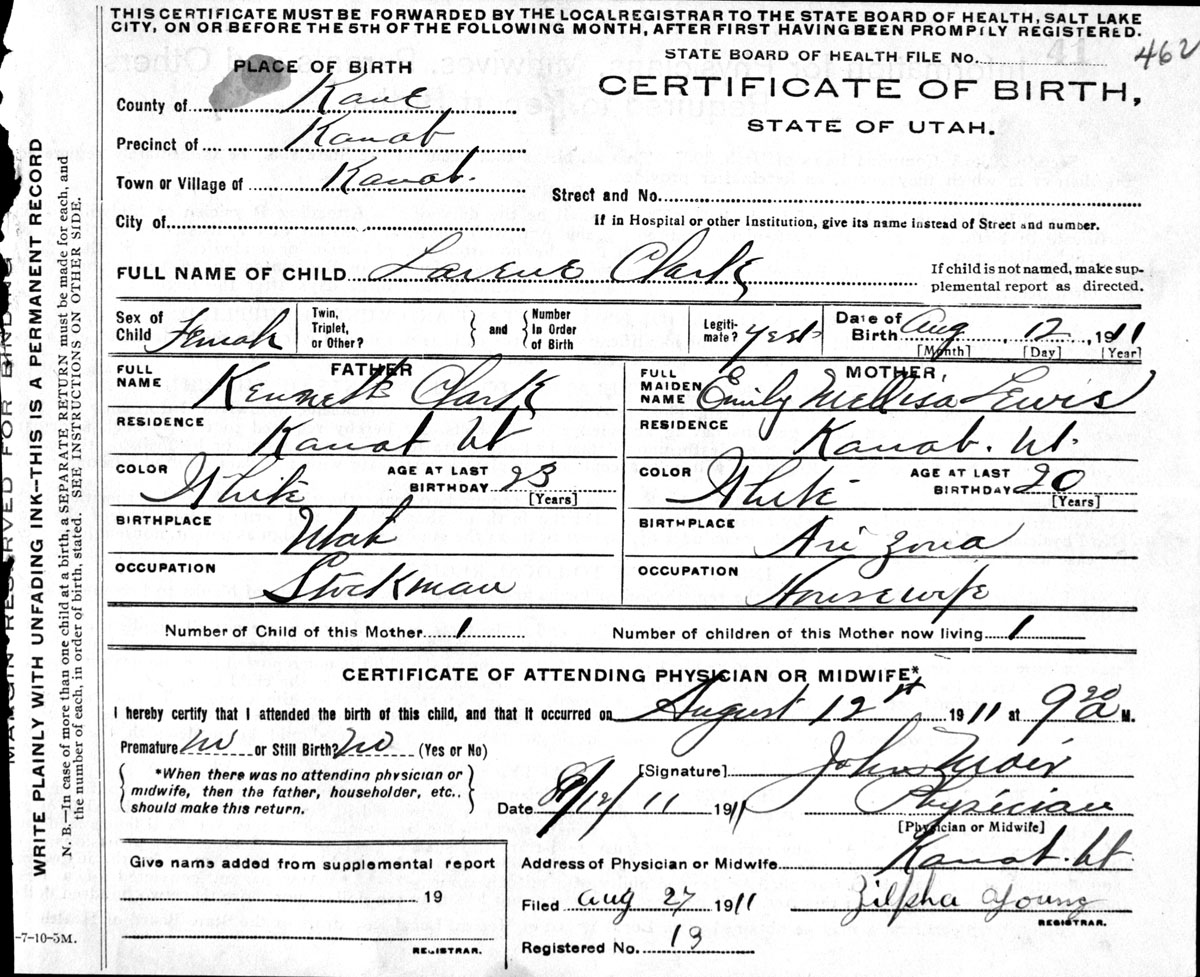 THIS CERTIFICATE MUST BE FORWARDED BY THE LOCALREGISTRAR TO THE STATE BOARD OF HEALTH, SALT LAKE
CITY, ON OR BEFORE THE 5TH OF THE FOLLOWING MONTH, AFTER FIRST HAVING BEEN PROMPILY REGISTERED.
STATE BOARD OF HEALTH FILE No. 462
PLACE OF BIRTH
CERTIFICATE OF BIRTH,
STATE OF UTAH.
County of Kane
Precinct of Kanab
Town or Village of Kanab.
Street and No.
City of
If in Hospital or other Institution, give its name instead of Street and number.
FULL NAME OF CHILD Larene Clark
If child is not named, make sup-
plemental report as directed.
Sex of Child Female
Twin, Triplet, or Other?
and
Number In Order of Birth
Legiti-mate? yes
Date of Birth Aug 12, 1911
[Month] [Day] [Year]
FATHER
FULL NAME Kenneth Clark
RESIDENCE Kanab Ut
COLOR White AGE AT LAST BIRTHDAY 23 [Years]
BIRTHPLACE Utah
OCCUPATION Stockman
MOTHER,
FULL MAIDEN NAME Emily Mellisa Lewis
RESIDENCE Kanab. Ut.
COLOR White AGE AT LAST BIRTHDAY 20 [Years]
BIRTHPLACE Arizona
OCCUPATION Housewife
Number of Child of this Mother 1 Number of children of this Mother now living 1
CERTIFICATE OF ATTENDING PHYSICIAN OR MIDWIFE*
I hereby certify that I attended the birth of this child, and that it occurred on August 12 1911 at 9 20 a M.
Premature no or Still Birth? no (Yes or No)
*When there was no attending phrsician or
midwife, then the father, householder, etc.,
should make this return.
[Signature] John
Date 8/12/11 1911
Physician
[Physician or Midwife]
Address of Physician or Midwife Kanab. Ut
Give name added from supplemental report
19
REGISTRAR.
Filed Aug 27 1911 Zilpha Young
REGISTRAR.
Registered No. 13
-7-10-5M.
MARGIN RESERVED FOR BINDING
WRITE PLAINLY WITH UNFADING INK--THIS IS A PERMANENT RECORD
N. B.—In case of more than one child at a birth, a SEPARATE RETURN must be made for each, and
the number of each, in order of birth, stated. SEE INSTRUCTIONS ON OTHER SIDE.